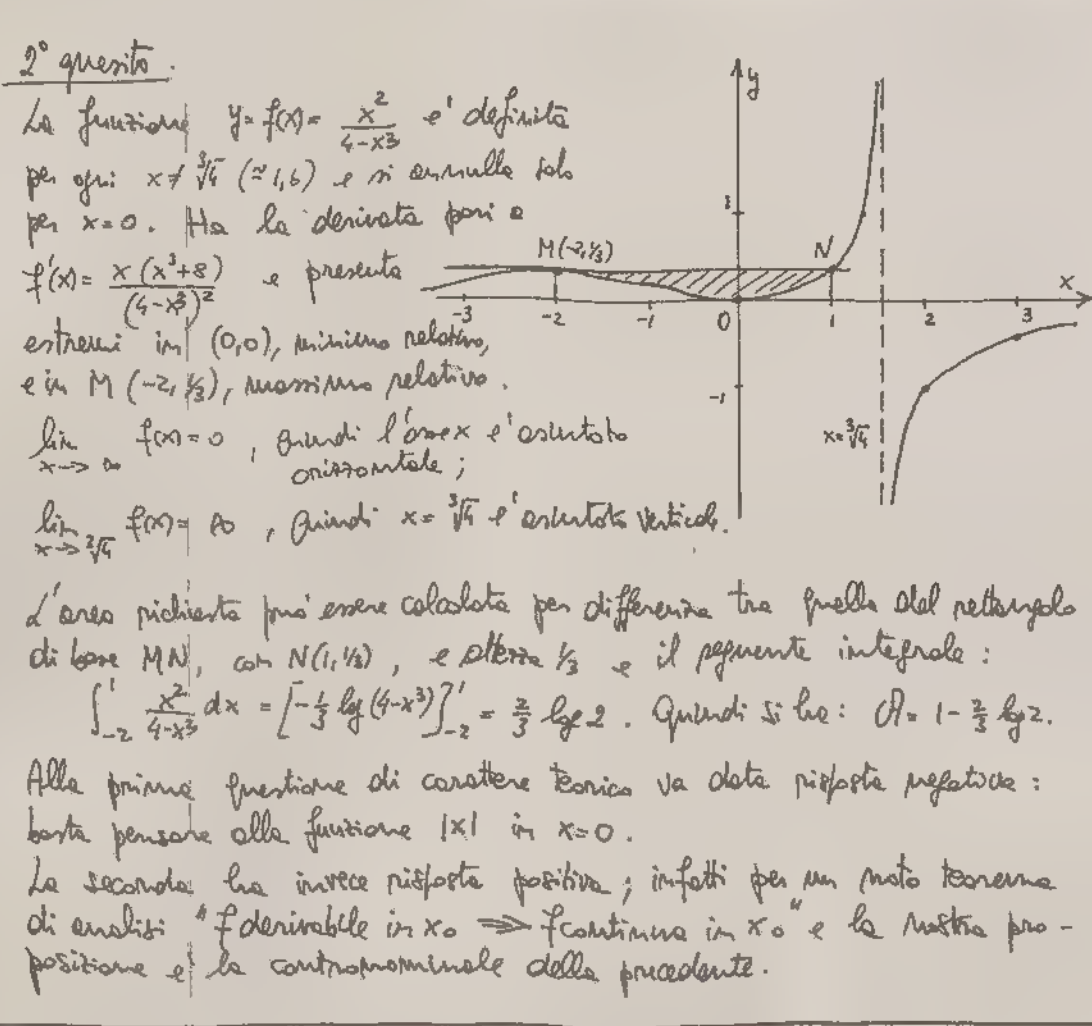 2° quesito.
La funzione y = f(x) = x²/(4-x³) e' definita
per ogni x ≠ ∛4 (≃ 1,6) e si annulla solo
per x = 0. Ha la derivata pari a
f'(x) = x(x³+8)/(4-x³)² e presenta
estremi in (0,0), minimo relativo,
e in M (-2, 1/3), massimo relativo.
lim x->∞ f(x) = 0, quindi l'asse x e' asintoto
orizzontale;
lim x->∛4 f(x) = ∞, quindi x = ∛4 e' asintoto verticale.
y
1
M(-2, 1/3)
N
x
-3 -2 -1 0 1 2 3
-1
x = ∛4
L'area richiesta può essere calcolata per differenza tra quella del rettangolo
di base MN, con N(1, 1/3), e altezza 1/3 e il seguente integrale:
∫₋₂¹ x²/(4-x³) dx = [-1/3 log (4-x³)]₋₂¹ = 2/3 log 2. Quindi si ha: A = 1 - 2/3 log 2.
Alla prima questione di carattere teorico va data risposta negativa:
basta pensare alla funzione |x| in x = 0.
La seconda ha invece risposta positiva; infatti per un noto teorema
di analisi "f derivabile in x₀ => f continua in x₀" e la nostra pro-
posizione e' la contronominale della precedente.